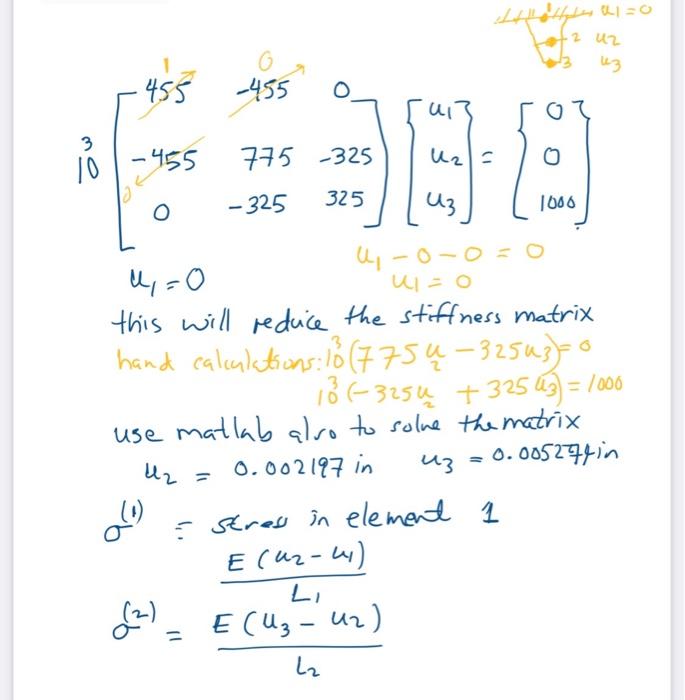 u1 = 0
2 u2
3 u3
1 0
455 -455 0
10^3 -455 775 -325
0
0 -325 325
u1
u2
u3
=
0
0
1000
u1 - 0 - 0 = 0
u1 = 0
u1 = 0
this will reduce the stiffness matrix
hand calculations: 10^3 (775 u2 - 325 u3) = 0
10^3 (-325 u2 + 325 u3) = 1000
use matlab also to solve the matrix
u2 = 0.002197 in u3 = 0.005274 in
σ^(1) = stress in element 1
E (u2 - u1)
L1
σ^(2) = E (u3 - u2)
L2